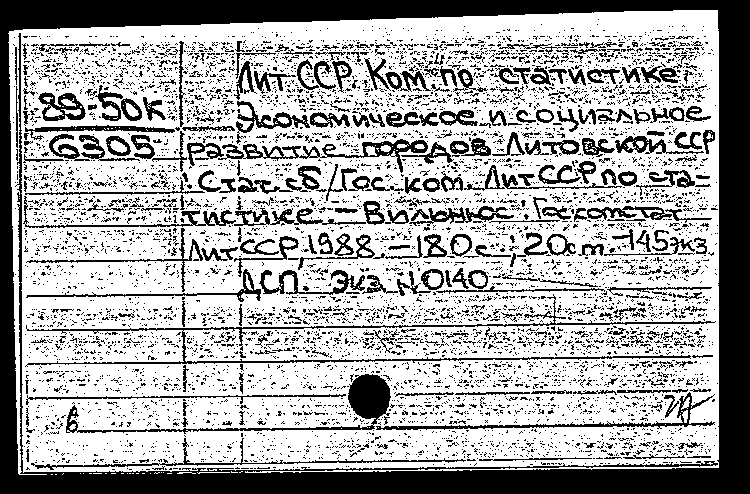 Лит ССР. Ком. по статистике.
89-50к
Экономическое и социальное
6305
развитие городов Литовской ССР
: Стат. сб / Гос. ком. Лит ССР по ста-
тистике. — Вильнюс : Госкомстат
Лит ССР, 1988. — 180с. ; 20 см. — 145 экз.
ДСП. Экз. N 0140.